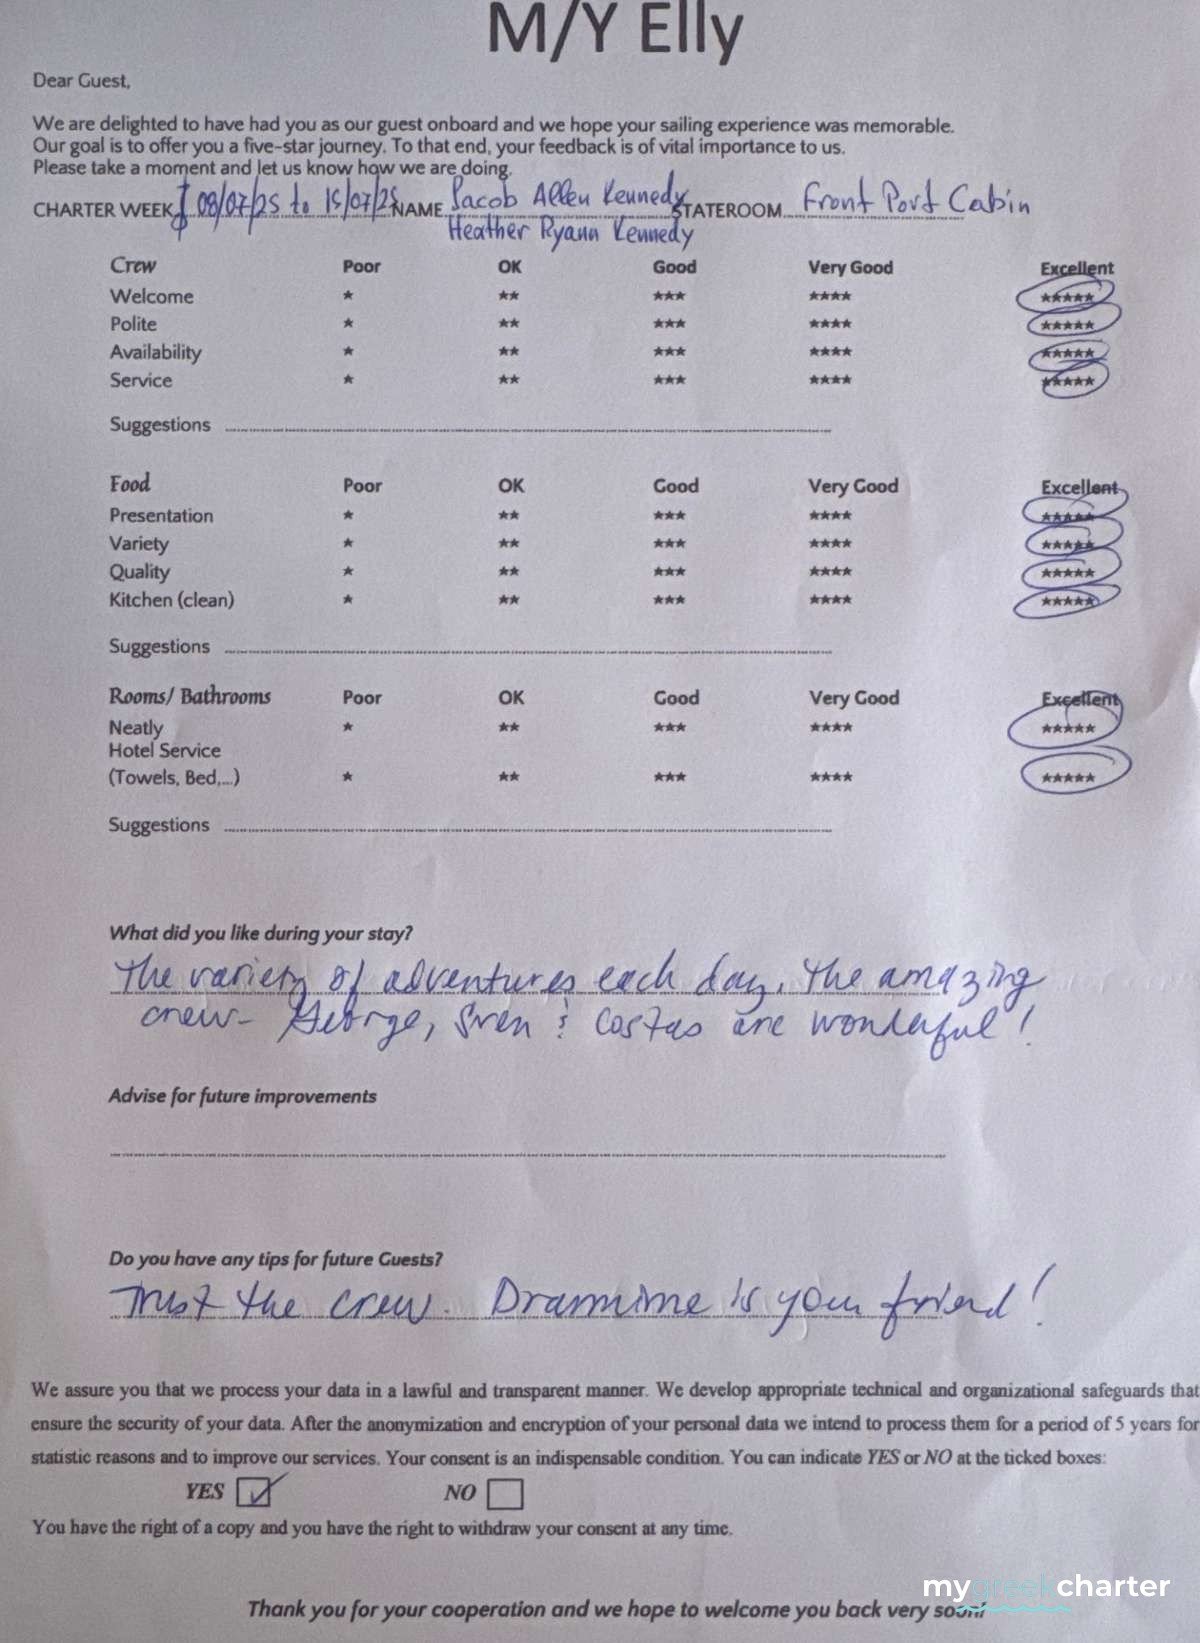 M/Y Elly
Dear Guest,
We are delighted to have had you as our guest onboard and we hope your sailing experience was memorable.
Our goal is to offer you a five-star journey. To that end, your feedback is of vital importance to us.
Please take a moment and let us know how we are doing.
CHARTER WEEK 08/07/25 to 15/07/25 NAME Jacob Allen Kennedy STATEROOM Front Port Cabin
Heather Ryann Kennedy
Crew Poor OK Good Very Good Excellent
Welcome ★ ★★ ★★★ ★★★★ ★★★★★
Polite ★ ★★ ★★★ ★★★★ ★★★★★
Availability ★ ★★ ★★★ ★★★★ ★★★★★
Service ★ ★★ ★★★ ★★★★ ★★★★★
Suggestions
Food Poor OK Good Very Good Excellent
Presentation ★ ★★ ★★★ ★★★★ ★★★★★
Variety ★ ★★ ★★★ ★★★★ ★★★★★
Quality ★ ★★ ★★★ ★★★★ ★★★★★
Kitchen (clean) ★ ★★ ★★★ ★★★★ ★★★★★
Suggestions
Rooms/ Bathrooms Poor OK Good Very Good Excellent
Neatly ★ ★★ ★★★ ★★★★ ★★★★★
Hotel Service
(Towels, Bed,...) ★ ★★ ★★★ ★★★★ ★★★★★
Suggestions
What did you like during your stay?
The variety of adventures each day. The amazing
crew - George, Sven & Costas are wonderful!
Advise for future improvements
Do you have any tips for future Guests?
Trust the crew. Dramimine is your friend!
We assure you that we process your data in a lawful and transparent manner. We develop appropriate technical and organizational safeguards that
ensure the security of your data. After the anonymization and encryption of your personal data we intend to process them for a period of 5 years for
statistic reasons and to improve our services. Your consent is an indispensable condition. You can indicate YES or NO at the ticked boxes:
YES ☑ NO ☐
You have the right of a copy and you have the right to withdraw your consent at any time.
mygreekcharter
Thank you for your cooperation and we hope to welcome you back very soon!